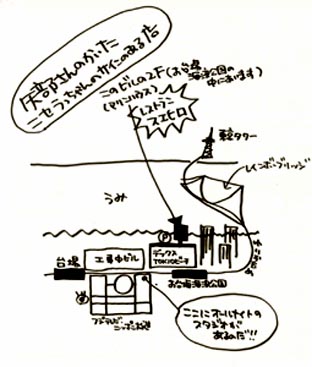 矢部さんのかいた
ニセラちゃんのサインのある店
このビルの2F(お台場
(マリンハウス)
海浜公園の
中にあります)
レストラン
スエヒロ
東京タワー
レインボーブリッジ
うみ
台場
工事中ビル
デックス
TOKYOビーチ
お台場海浜公園
フジテレビ
ニッポン放送
ここにオールナイトの
スタジオが
あるのだ!!